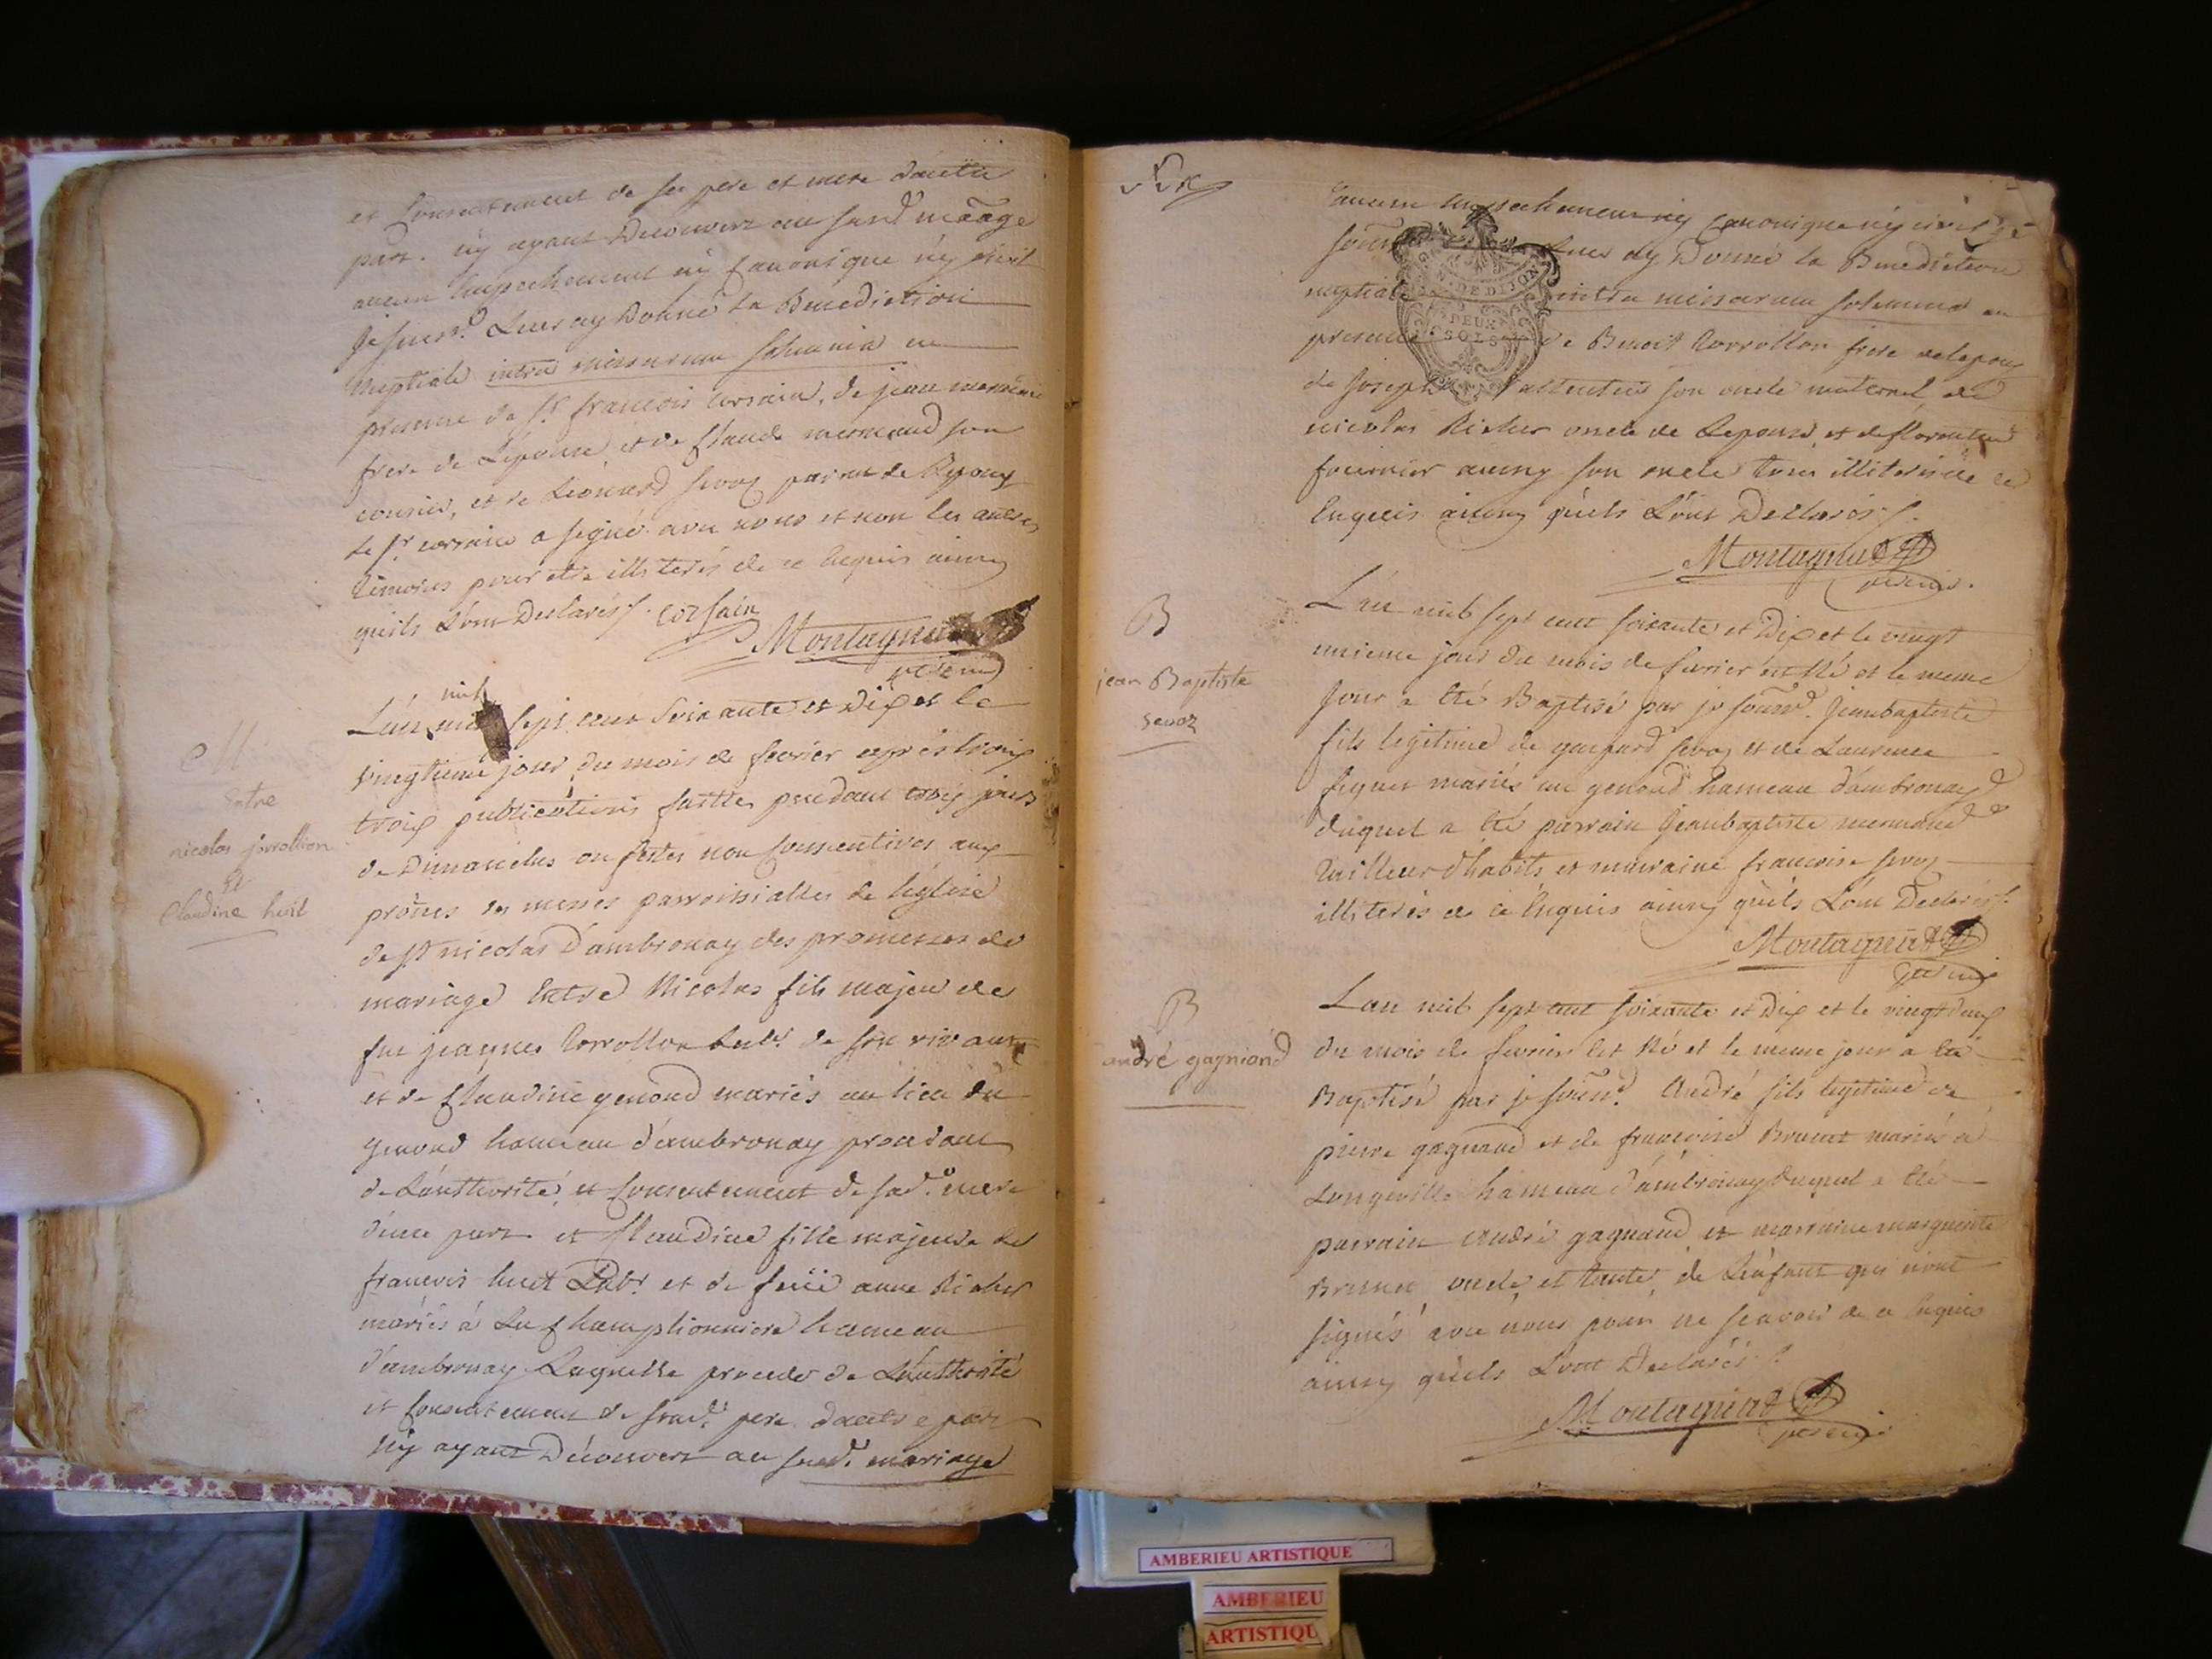 et Consentement de ses pere et mere d'autre
part. n'y ayant Decouvert au susd. mãage
aucun Empechement ny Canonique n'y civil
je souss.d Curé ay Donné la Benediction
Nuptiale intra missarum solemnia en
presence de Sr. francois Corsain, de jean mermand
frere de L'epouse et de Claude mermand son
cousin, et de Léonard sevoz parent de Lepoux
Le Sr. corsain a signé avec nous et non les autres
temoins pour etre illiterés de ce Enquis ainsy
qu'ils L'ont Declarés. Corsain
Montagnat
M
Entre
nicolas jorrollion
et
Claudine huit
L'an mil sept cent soixante et Dix et le
vingtieme jour du mois de fevrier après trois
trois publications faittes pendant trois jours
de Dimanches ou festes non Consecutives aux
prônes des messes parroissialles de l'église
de St. nicolas d'ambronay des promesses de
mariage Entre Nicolas fils majeur de
feu jacques Corrollon Labr. de son vivant
et de Claudine genoud mariés au lieu du
genoud hameau d'ambronay procedant
de L'authorité et Consentement de sad. mere
d'une part et Claudine fille majeure de
francois huit Labr. et de feüe anne Richer
mariés à La Championniere hameau
d'ambronay Laquelle procede de L'authorité
et Consentement de sond. pere d'autre part
n'y ayant Découvert au susd. mariage
aucun Empechement ny Canonique ny civil je
ay Donné la Benediction
intra missarum solemnia en
presence de Benoit Corrollon frere de lepoux
de joseph son oncle maternel de
nicolas Richer oncle de Lepouse, et de
fournier aussy son oncle tous illiterés de ce
Enquis ainsy qu'ils L'ont Declarés.
Montagnat
B
jean Baptiste
sevoz
L'an mil sept cent soixante et Dix et le vingt
unieme jour du mois de fevrier est Né et le meme
jour a Eté Baptisé par je souss.d Jeanbaptiste
fils legitime de gaspard sevoz et de Laurence
mariés au genoud hameau d'ambronay
duquel a Eté parrain Jeanbaptiste mermand
tailleur d'habits et marraine francoise sevoz
illiterés de ce Enquis ainsy qu'ils L'ont Declarés.
Montagnat
B
andré gagniond
L'an mil sept cent soixante et Dix et le vingt deux
du mois de fevrier Est Né et le meme jour a Eté
Baptisé par je souss.d André fils legitime de
pierre gagnand et de francoise Brunet mariés à
Longeville hameau d'ambronay duquel a Eté
parrain André gagnand et marraine marguerite
Brunet oncle et tante de L'enfant qui n'ont
signés avec nous pour ne scavoir de ce Enquis
ainsy qu'ils L'ont Declarés.
Montagnat
DE DIJON
DEUX
SOLS
AMBERIEU ARTISTIQUE
AMBERIEU
ARTISTIQU